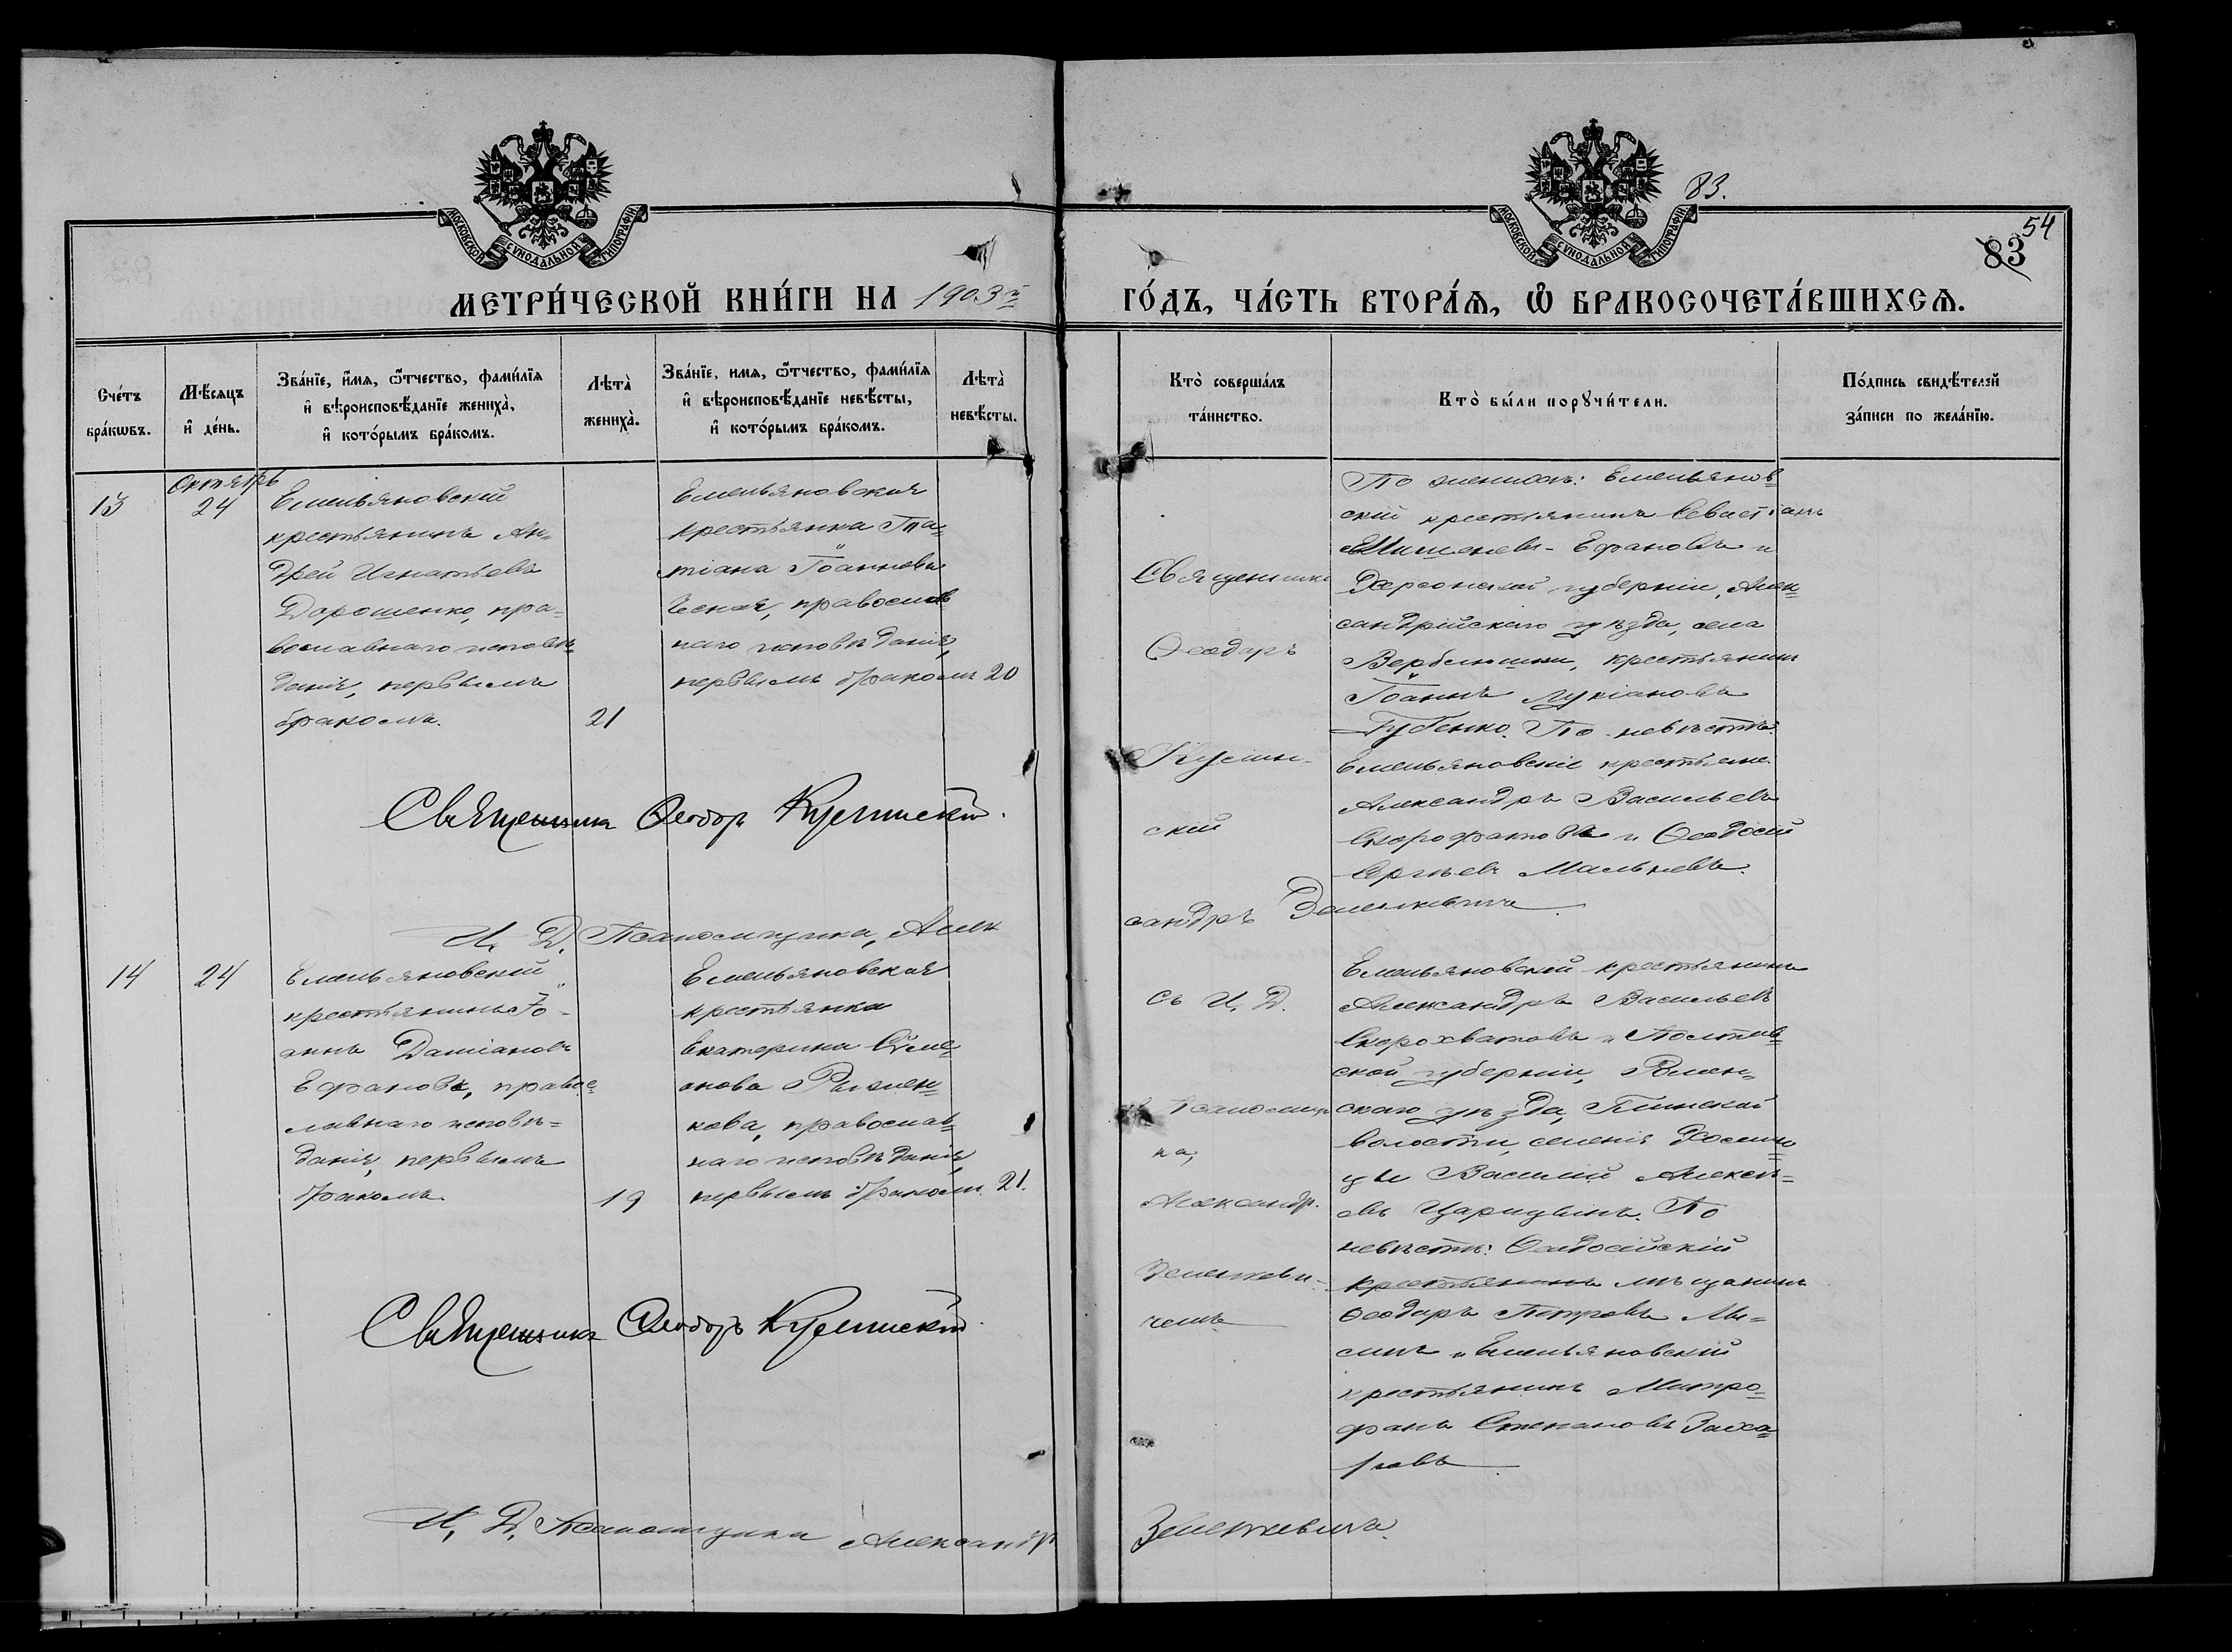 83.
54
83
МОСКОВСКОЙ СУНОДАЛЬНОЙ ТИПОГРАФІИ
МОСКОВСКОЙ СУНОДАЛЬНОЙ ТИПОГРАФІИ
МЕТРИ́ЧЕСКОЙ КНИ́ГИ НА 1903й ГО́ДЪ, ЧА́СТЬ ВТОРА́Ѧ, Ѽ БРАКОСОЧЕТА́ВШИХСѦ.
Сче́тъ бра́кѡвъ.
Мѣ́сяцъ и҆ де́нь.
Зва́нїе, и҆́мѧ, ѻ҆́тчество, фами́лїѧ
и҆ вѣроисповѣ́данїе жениха̀,
и҆ кото́рымъ бра́комъ.
Лѣта̀ жениха̀.
Зва́нїе, имѧ, ѻ҆́тчество, фами́лїѧ
и҆ вѣроисповѣ́данїе невѣ́сты,
и҆ кото́рымъ бра́комъ.
Лѣта̀ невѣ́сты.
Кто̀ соверша́лъ
та́инство.
Кто̀ бы́ли порꙋчи́тели.
По́дпись свидѣ́телей
за́писи по жела́нїю.
13
Октябрь
24
Емельяновскій
крестьянинъ Ан=
дрей Игнатьевъ
Дорошенко, пра=
вославнаго исповѣ=
данія, первымъ
бракомъ.
21
Емельяновская
крестьянка Та=
тіана Іоаннова
православ
наго исповѣданія,
первымъ бракомъ 20
Священникъ
Ѳеодоръ
скій
По женихѣ: Емельянов=
скій крестьянинъ Севастіанъ
Ефановъ и
Херсонской губерніи, Алек=
сандрійскаго уѣзда, села
Вербелюшки, крестьянинъ
Іоаннъ Лукіановъ
Губенко. По невѣстѣ:
Емельяновскіе крестьяне
Александръ Васильевъ
Скорохватовъ и Ѳеодосій
Сергѣевъ Мальневъ.
Священникъ Ѳеодоръ
И. Д. Псаломщика, Алек
сандръ Земенкевичъ.
14
24
Емельяновскій
крестьянинъ Іо=
аннъ Даміановъ
Ефановъ, правос=
лавнаго исповѣ=
данія, первымъ
бракомъ.
19
Емельяновская
крестьянка
Екатерина Симе=
онова Рыжен=
кова, православ=
наго исповѣданія,
первымъ бракомъ. 21.
Съ И. Д.
Псаломщи
ка,
Александр.
Земенкеви=
чемъ
Емельяновскій крестьянинъ
Александръ Васильевъ
Скорохватовъ и Полтав=
ской губерніи, Ромен=
скаго уѣзда, Глинской
волости, селенія
цы Василій Алексѣ=
евъ Царицынъ. По
невѣстѣ: Ѳеодосійскій
крестьянинъ мѣщанинъ
Ѳеодоръ Петровъ Мы=
синъ и Емельяновскій
крестьянинъ Митро=
фанъ Степановъ Заха=
ровъ
Священникъ Ѳеодоръ
И. Д. Псаломщика Александръ
Земенкевичъ.